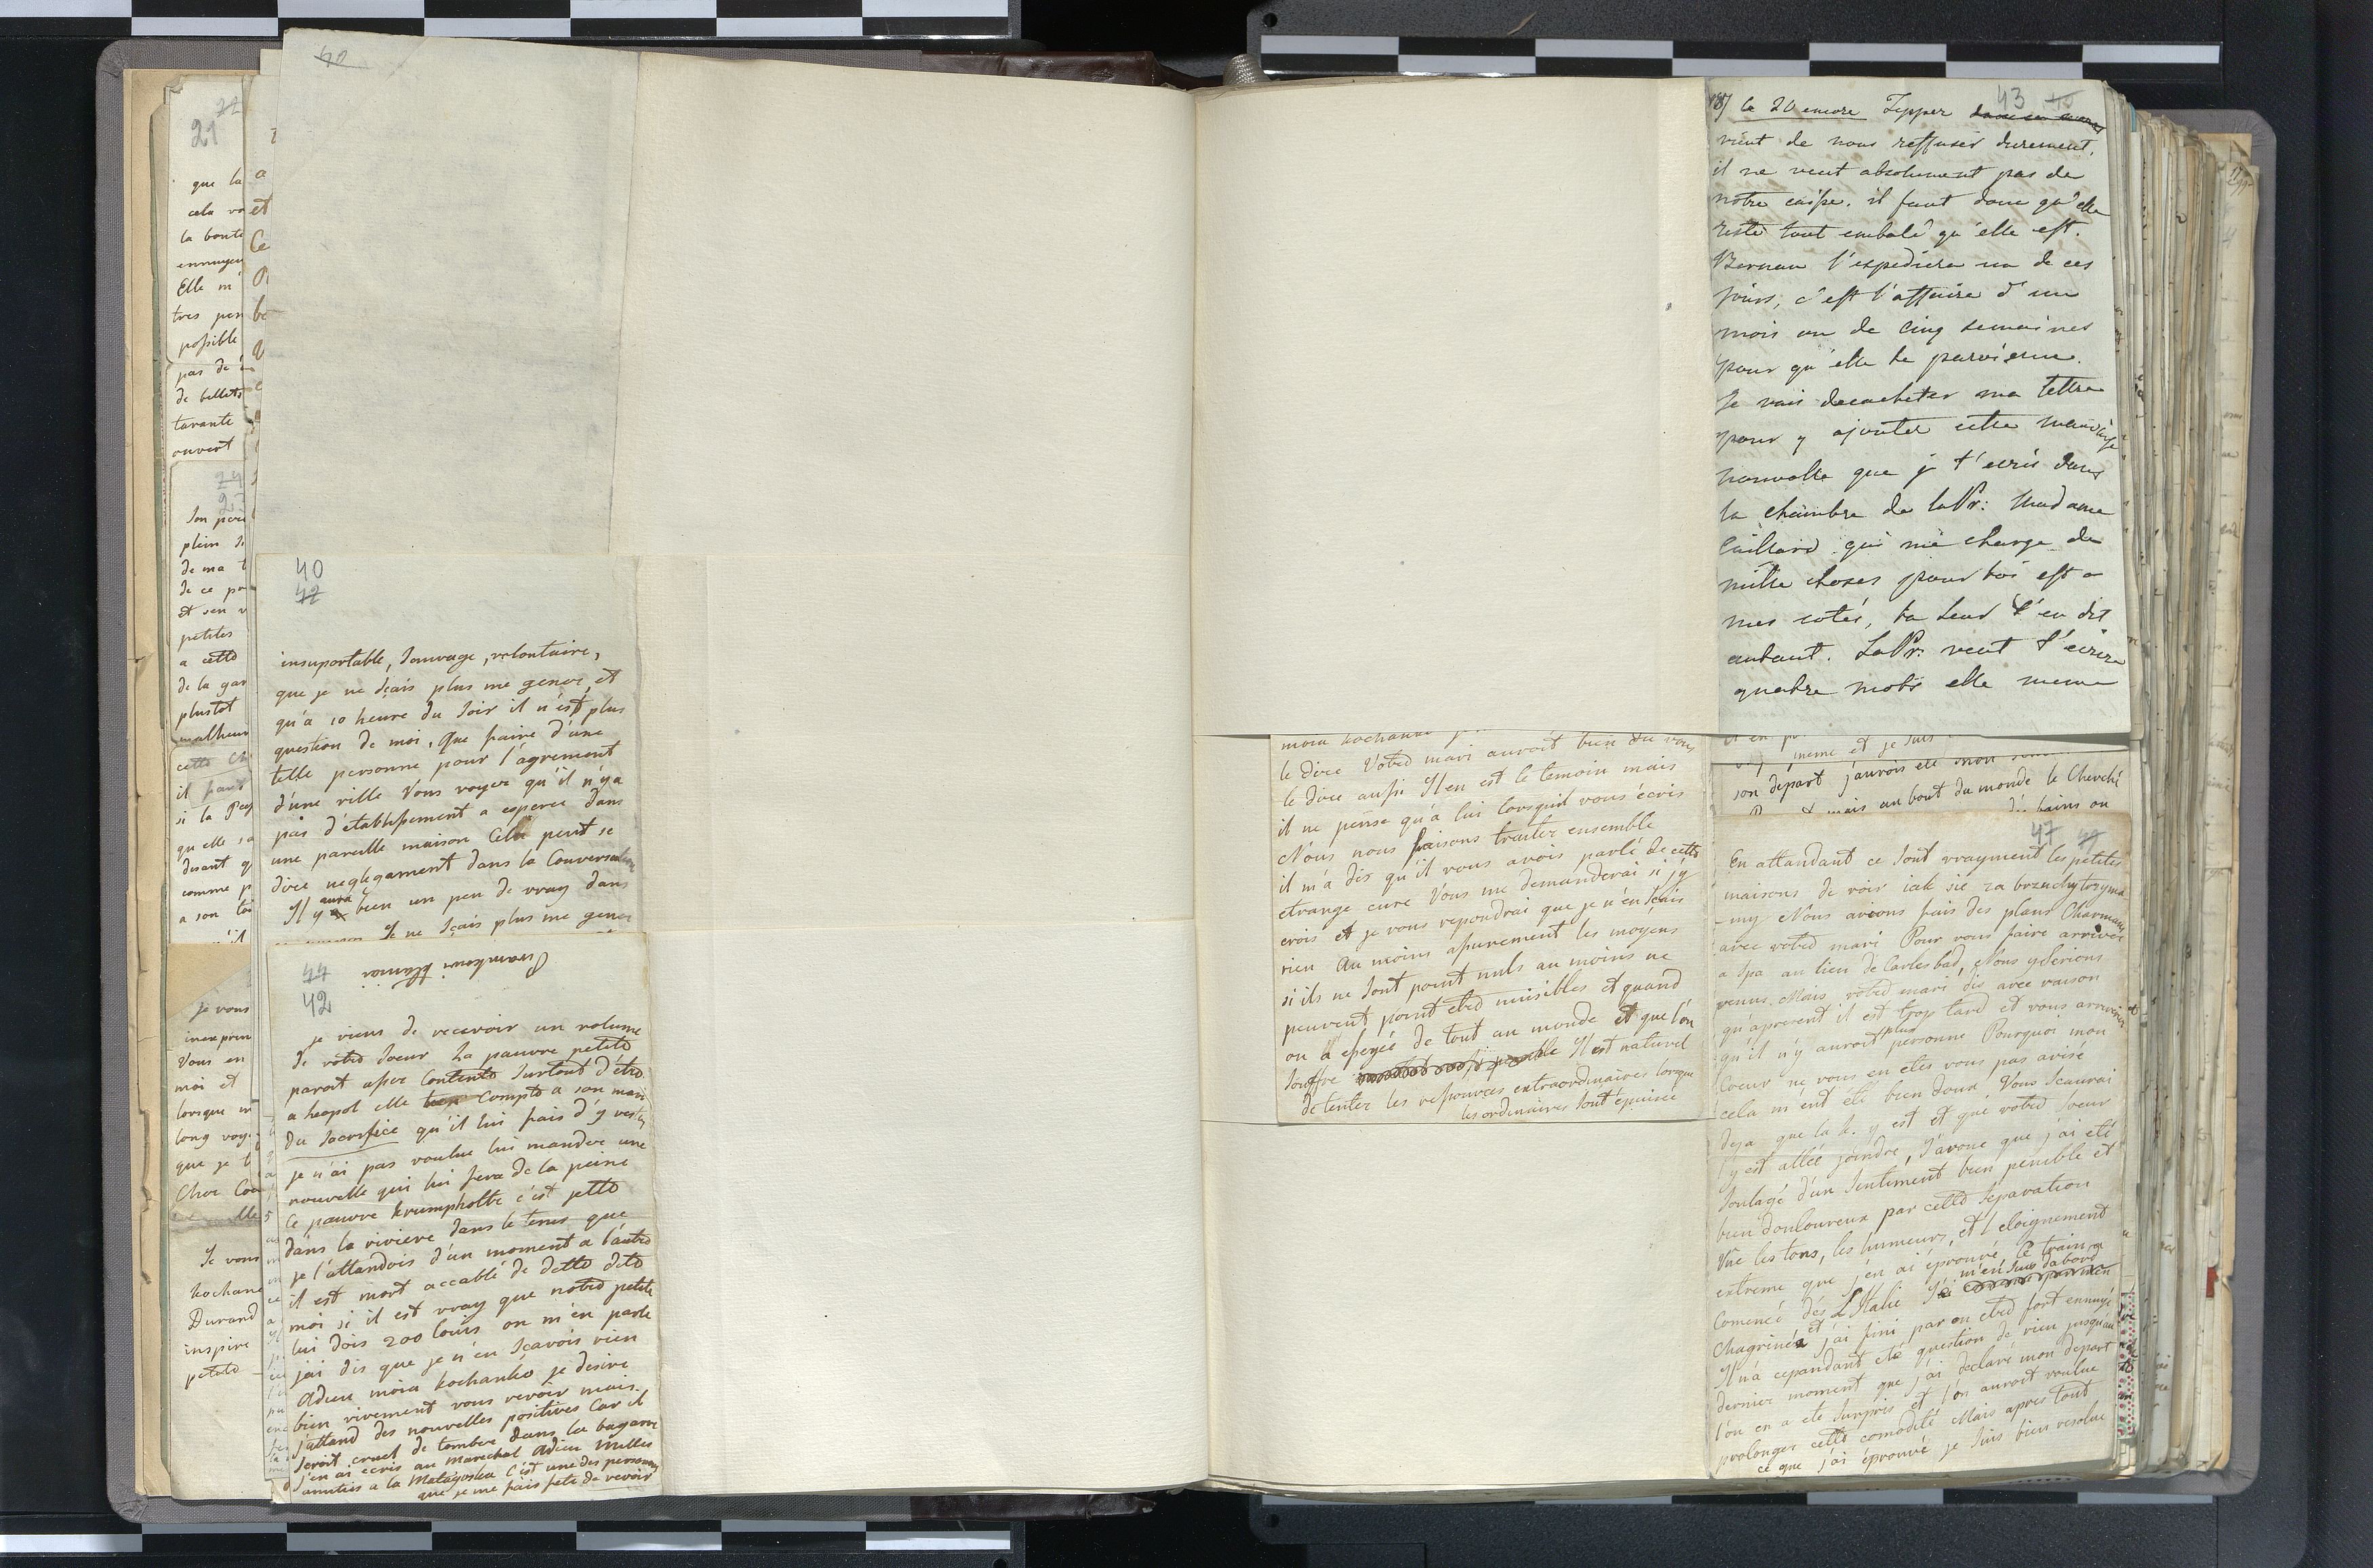 22
21
que la
cela vo
la bonté
ennuyeu
Elle m'
tres peu
possible
pas de
de billets
tarante
ouvert
24
Son peu
plein
de ma
de ce
et sen
petites
a cette
de la gar
plustot
malheur
cette
il faut
si la
qu elle
disant
comme
a son
je vous
inexprim
Vous en
moi et
lorsque
long voy
que je
Cher
Je vous
kochane
Durand
inspire
petite
40
40
42
insuportable, Sauvage, volontaire,
que je ne sçais plus me gener, et
qu'a 10 heure du Soir il n'est plus
question de moi, Que faire d'une
telle personne pour l'agrement
d'une ville Vous voyez qu'il n'y a
pas d'etablissement a esperer dans
une pareille maison Cela peut se
dire neglegament dans la Conversation
Il y aura bien un peu de vray dans
Je ne sçais plus me gener
44
42
je viens de recevoir un volume
de votre Soeur La pauvre petite
paroit assez Contente Surtout d'être
a heapol elle bien Compte a son mari
du Sacrifice qu'il lui fais d'y rester
je n'ai pas voulue lui mander une
nouvelle qui lui fera de la peine
Ce pauvre Krumpholtz c'est jetté
dans la riviere dans le tems que
je l'attandois d'un moment a l'autre
il est mort accablé de dette dite
moi si il est vray que notre petite
lui dois 200 louis on m'en parle
jai dis que je n'en Scavois rien
Adieu moia kochanko je desire
bien vivement vous revoir mais
j'attand des nouvelles positives Car il
Seroit cruel de tomber dans la bagare
j'en ai ecris au Marechal Adieu milles
amities a la Matagoska C'est une des personnes
que je me fais fete de revoir
moia kochanko
le dire Votre mari auroit bien du vous
le dire aussi Il en est le temoin mais
il ne pense qu'a lui lorsquil vous écris
Nous nous faisons traiter ensemble
il m'a dis qu'il vous avois parlé de cette
etrange cure Vous me demanderai si j'y
crois et je vous repondrai que je n'en sçais
rien au moins assurement les moyens
si ils ne Sont point nuls au moins ne
peuvent point etre nuisibles et quand
on a essayée de tout au monde et que l'on
Souffre Il est naturel
de tenter les ressources extraordinaires lorsque
les ordinaires Sont épuisée
43 45
le 20 encore Tepper
vient de nous reffuser durement,
il ne veut absolument pas de
notre caisse. il faut donc qu'elle
reste tout embalé qu'elle est.
Bernau l'expediera un de ces
jours, c'est l'affaire d'un
mois ou de cinq semaines
pour qu'elle te parvienne.
Je vais decacheter ma lettre
pour y ajouter cette mauvaise
nouvelle que je t'ecris dans
la chambre de la Pr: Madame
Caillard qui me charge de
mille choses pour toi est a
mes cotés, ta Seur t'en dit
autant. La Pr: veut t'ecrire
quatre mots elle meme
meme et je suis
son départ j'aurois ete mon
mais au bout du monde le Cherché
bains ou
47 49
En attandant ce Sont vrayment les petites
maisons de voir iak sie za brzuchy trzyma
-my Nous avions fais des plans Charmans
avec votre mari Pour vous faire arriver
a Spa au lieu de Carlesbad, Nous y Serions
venus Mais votre mari dis avec raison
qu'apresent il est trop tard et vous arriverier
qu'il n'y auroit plus personne Pourquoi mon
Coeur ne vous en etes vous pas avisé
cela m'eut été bien doux Vous Scaurai
deja que la k. y est et que votre Soeur
y est allée joindre, J'avoue que j'ai eté
Soulagé d'un Sentiment bien penible et
bien douloureux par cette Séparation
Vûe les tons, les humeurs, et l'eloignement
extreme que j'en ai éprouvé, le train a
Comencé dés L'Italie Je m'en suis dabord
Chagrinée et j'ai fini par en etre fort ennuyé
Il n'a cepandant été question de rien jusqu'au
dernier moment que j'ai declaré mon depart
l'on en a ete Surpris et l'on auroit voulue
prolonger cette comodité Mais apres tout
ce que j'ai éprouvé je Suis bien resolue